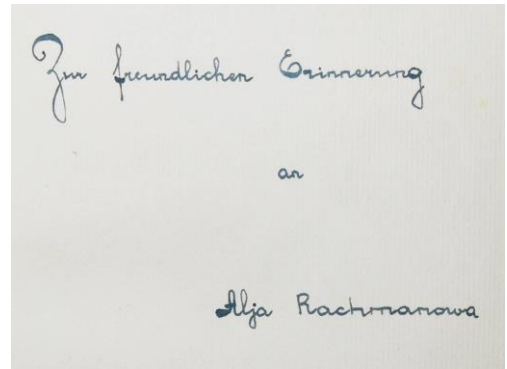 Zur freundlichen Erinnerung
an
Alja Rachmanowa